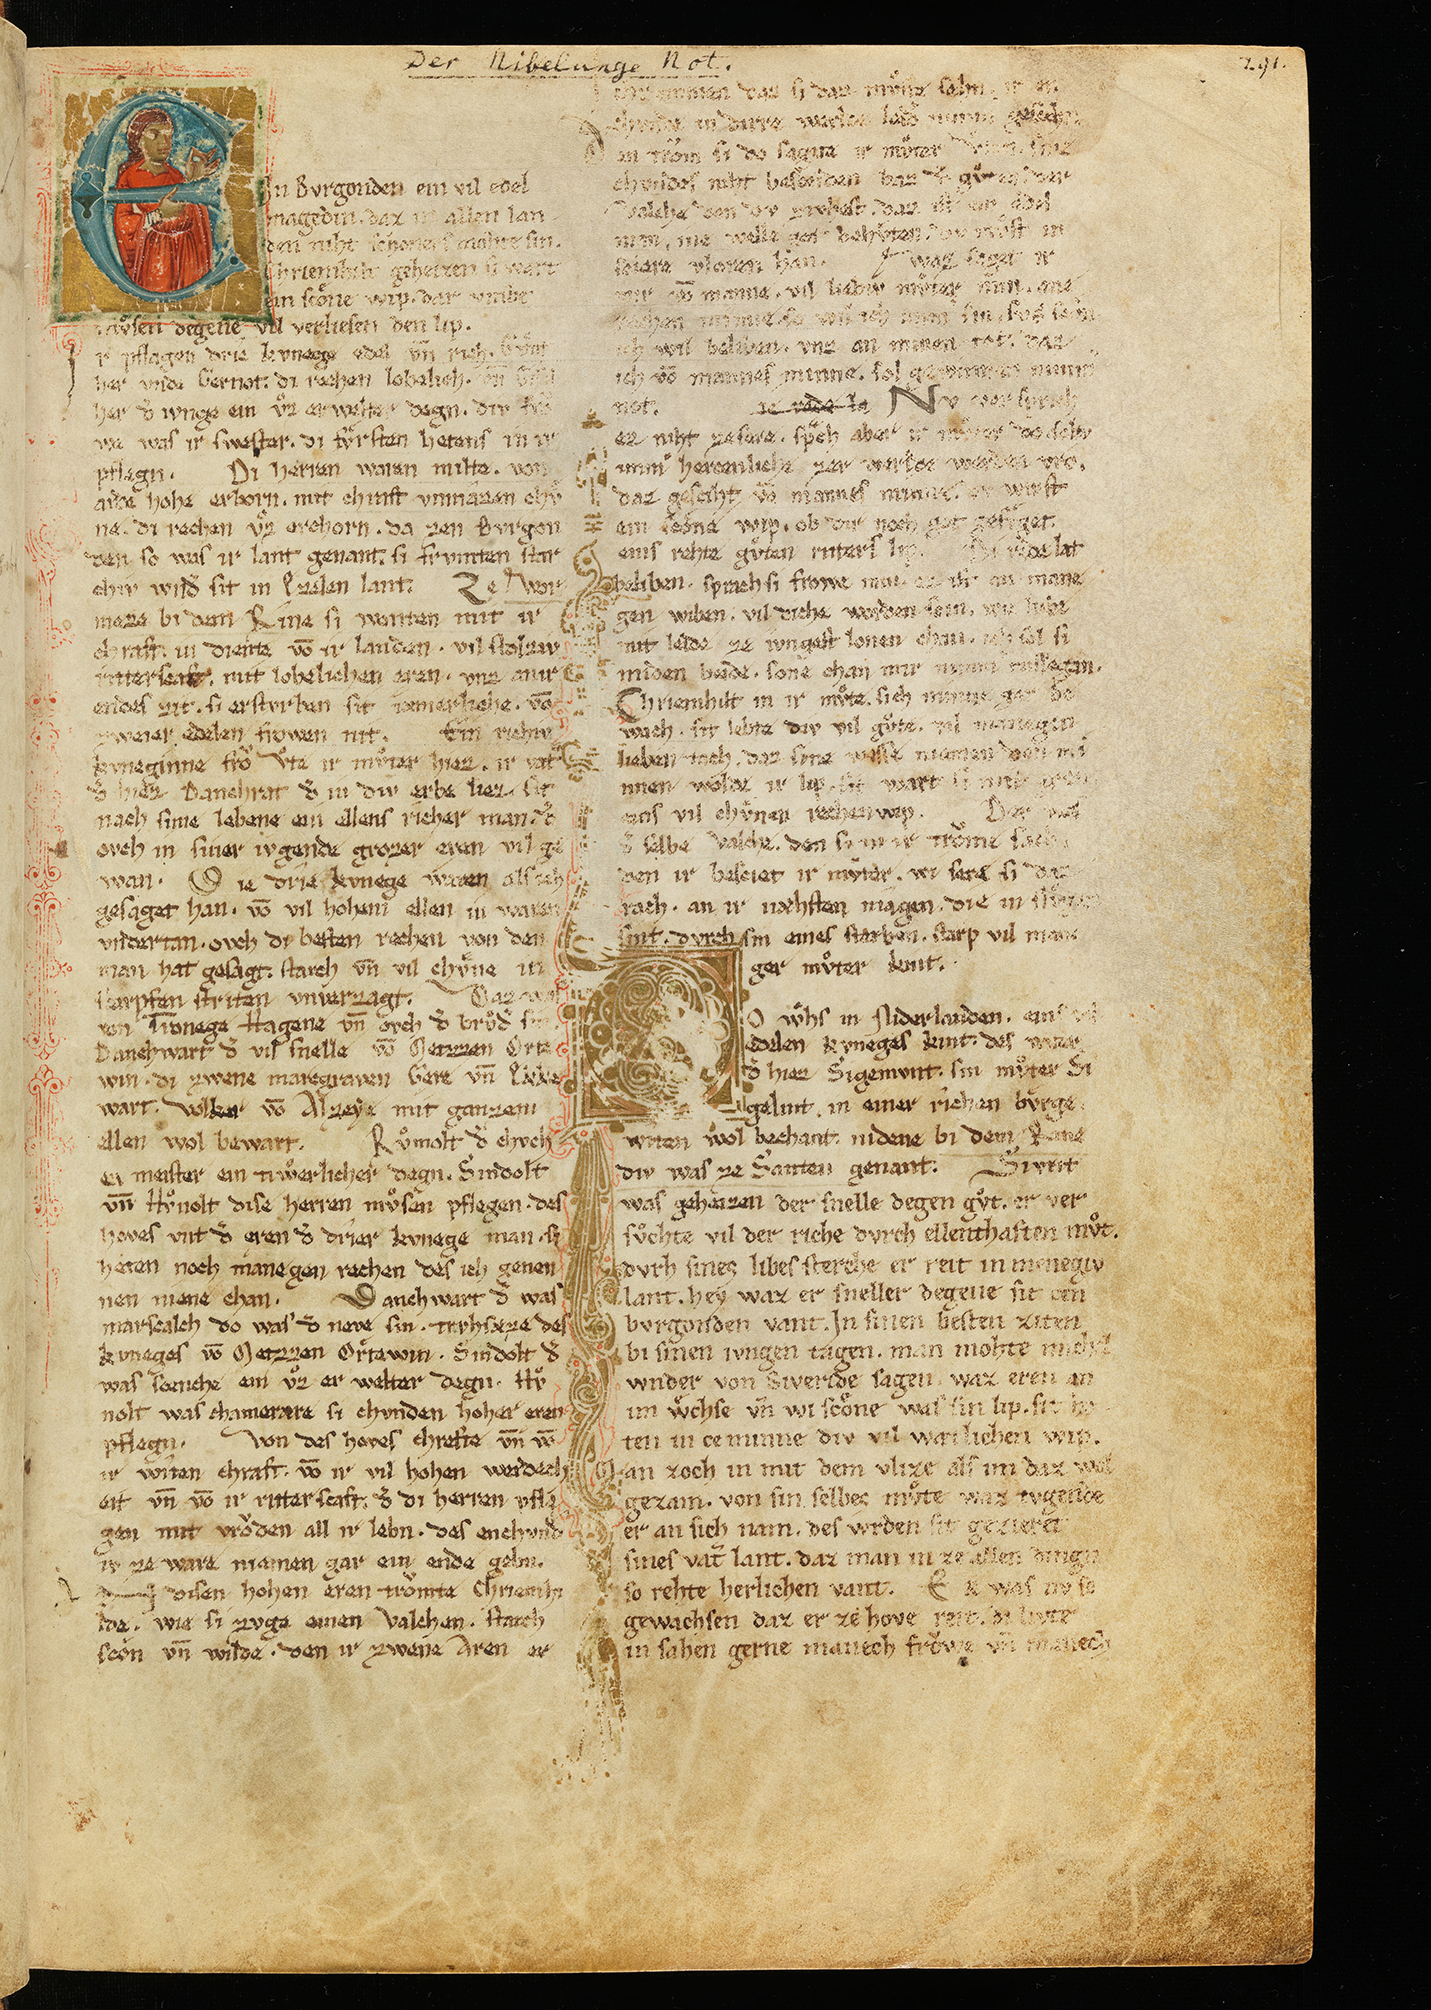 Der Nibelunge Not.
291.
En Bvrgonden ein vil edel
magedin. daz in allen lan
den niht schoners mohte sin.
Chriemhilt geheizen si wart
ein scoͤne wip. dar vmbe
mvͦsen degene vil verliesen den lip.
Ir pflagen drie kvnege edel vn̄ rich. Gvnt
her vnde Gernot. di rechen lobelich. vn̄ Gisel
her d᷑ ivnge ein vͦz erwelter degn. div frov
we was ir swester. di fvrsten hetens in ir
pflegn. Di herren waren milte. von
arde hohe erborn. mit chraft vnmazen chv
ne. di rechen vͦz erchorn. da zen Bvrgon
den so was ir lant genant. si frvmten star
chiv wnd᷑ sit in Ezelen lant. Ze Wor
meze bi dem Rine si wonten mit ir
chraft. in diente vō ir landen. vil stolziv
ritterscaft. mit lobelichen eren. vnz an ir
endes zit. si ersturben sit iæmerliche. vō
zweier edelen frowen nit. Ein richiv
kvneginne frō Vͦte ir mvͦter hiez. ir vat᷑
d᷑ hiez Danchrat d᷑ in div erbe liez. sit
nach sime lebene ein ellens richer man. d᷑
ovch in siner ivgende grozer eren vil ge
wan. Die drie kvnege waren als ich
gesaget han. vō vil hohem ellen in waren
vndertan. ovch di besten rechen von den
man hat gesagt. starch vn̄ vil chvͤne in
scarpfen striten vnverzagt. Daz was
von Tronege Hagene vn̄ ovch d᷑ brvͦd᷑ sin.
Danchwart d᷑ vil snelle vō Metzzen Orte
win. di zwene marcgraven Gere vn̄ Ekke
wart. Volker vō Alzeye mit ganzem
ellen wol bewart. Rvͦmolt d᷑ chvch
en meister ein tiwerlicher degn. Sindolt
vn̄ Hvͦnolt dise herren mvͦsen pflegen. des
hoves vnt d᷑ eren d᷑ drier kvnege man. si
heten noch manegen rechen des ich genen
nen niene chan. Danchwart d᷑ was
marscalch do was d᷑ neve sin. trvhsæze des
kvneges vō Metzzen Ortewin. Sindolt d᷑
was scenche ein vͦz er welter degn. Hvͦ
nolt was chamerære si chvnden hoher eren
pflegn. Von des hoves chrefte vn̄ vō
ir witen chraft. vō ir vil hohen werdech
eit vn̄ vō ir ritterscaft. d᷑ di herren pfla
gen mit vrovden all ir lebn. des enchvnd
iv ze ware niemen gar ein ende gebn.
disen hohen eren troͮmte Chriemhi
lde. wie si zvge einen valchen. starch
scoͤn vn̄ wilde. den ir zwene Aren er
chrimmen daz si daz mvͦste sehn. ir en
chvnde in dirre werlde leid᷑ nimm᷑ gescehn
en troͮm si do sagete ir mvͦter Vͦten. sine
chvndes niht besceiden baz d᷑ gvͦten. der
valche den dv zivhest. daz ist ein edel
man. ine welle got behvͤten. dv mvͦst in
sciere vloren han. Waz saget ir
mir vō manne. vil liebiv mvͦter min. ane
rechen minne. so wil ich imm᷑ sin. svs scoͤn
ich wil beliben. vnz an minen tot. daz
ich vō mannes minne. sol gewinnen nimm᷑
not. Nv versprich
ez niht ze sere. sprach aber ir mvͦter do. soltv
imm᷑ hercenliche zer werlde werden vro.
daz gesciht vō mannes minne. dv wirst
ein scoͤne wip. ob dir noch got gefvͤget.
eins rehte gvͦten ritters lip. Di rede lat
beliben. sprach si frowe min. ez ist an mane
gen wiben. vil diche worden scin. wie liebe
mit leide ze ivngest lonen chan. ich sol si
miden beide. sone chan mir nimm᷑ missegan.
Chriemhilt in ir mvͦte. sich minne gar be
wach. sit lebte div vil gvͦte. vil manegen
lieben tach. daz sine wesse niemen den mi
nnen wolde ir lip. sit wart si mit eren
eins vil chvͤnen rechen wip. Der was
d᷑ selbe valche. den si in ir troͮme sach.
den ir besciet ir mvͦter. wi sere si daz
rach. an ir næhsten magen. die in slvͦgen
sint. dvrch sin eines sterben. starp vil mane
ger mvͦter kint.
Do wͦhs in Niderlanden. eins vil
edelen kvneges kint. des vater
d᷑ hiez Sigemvnt. sin mvͦter Si
gelint. in einer richen bvrge
witen wol bechant. nidene bi dem Rine
div was ze Santen genant. Sivrit
was geheizen der snelle degen gvͦt. er ver
svͦchte vil der riche dvrch ellenthaften mvͦt.
dvrh sines libes sterche er reit in menegiv
lant. hey waz er sneller degene sit cen
bvrgonden vant. In sinen besten ziten
bi sinen ivngen tagen. man mohte michel
wnder von Sivride sagen. waz eren an
im wͦchse vn̄ wi scoͤne was sin lip. sit he
ten in ce minne div vil wætlichen wip.
Man zoch in mit dem vlize als im daz wol
gezam. von sin selbes mvͦte waz tvgende
er an sich nam. des wrden sit gezieret
sines vat᷑ lant. daz man in ze allen dingn
so rehte herlichen vant. Er was nv so
gewachsen daz er ze hove reit. di livte
in sahen gerne manech frowe vn̄ manech